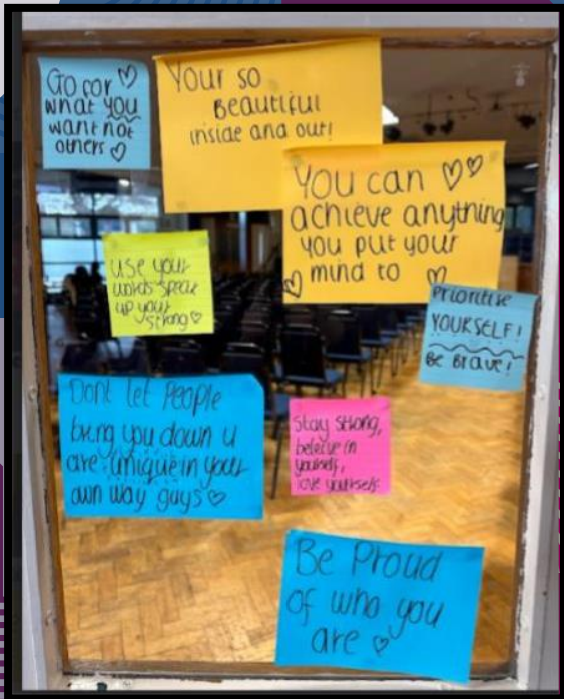 Go for
what you
want not
others
Your so
Beautiful
inside and out!
You can
achieve anything
you put your
mind to
use your
words speak
up your
strong
Prioritise
YOURSELF!
Be Brave!
Dont let People
bring you down u
are unique in your
own way guys
Stay strong,
believe in
yourself,
love yourself
Be Proud
of who you
are